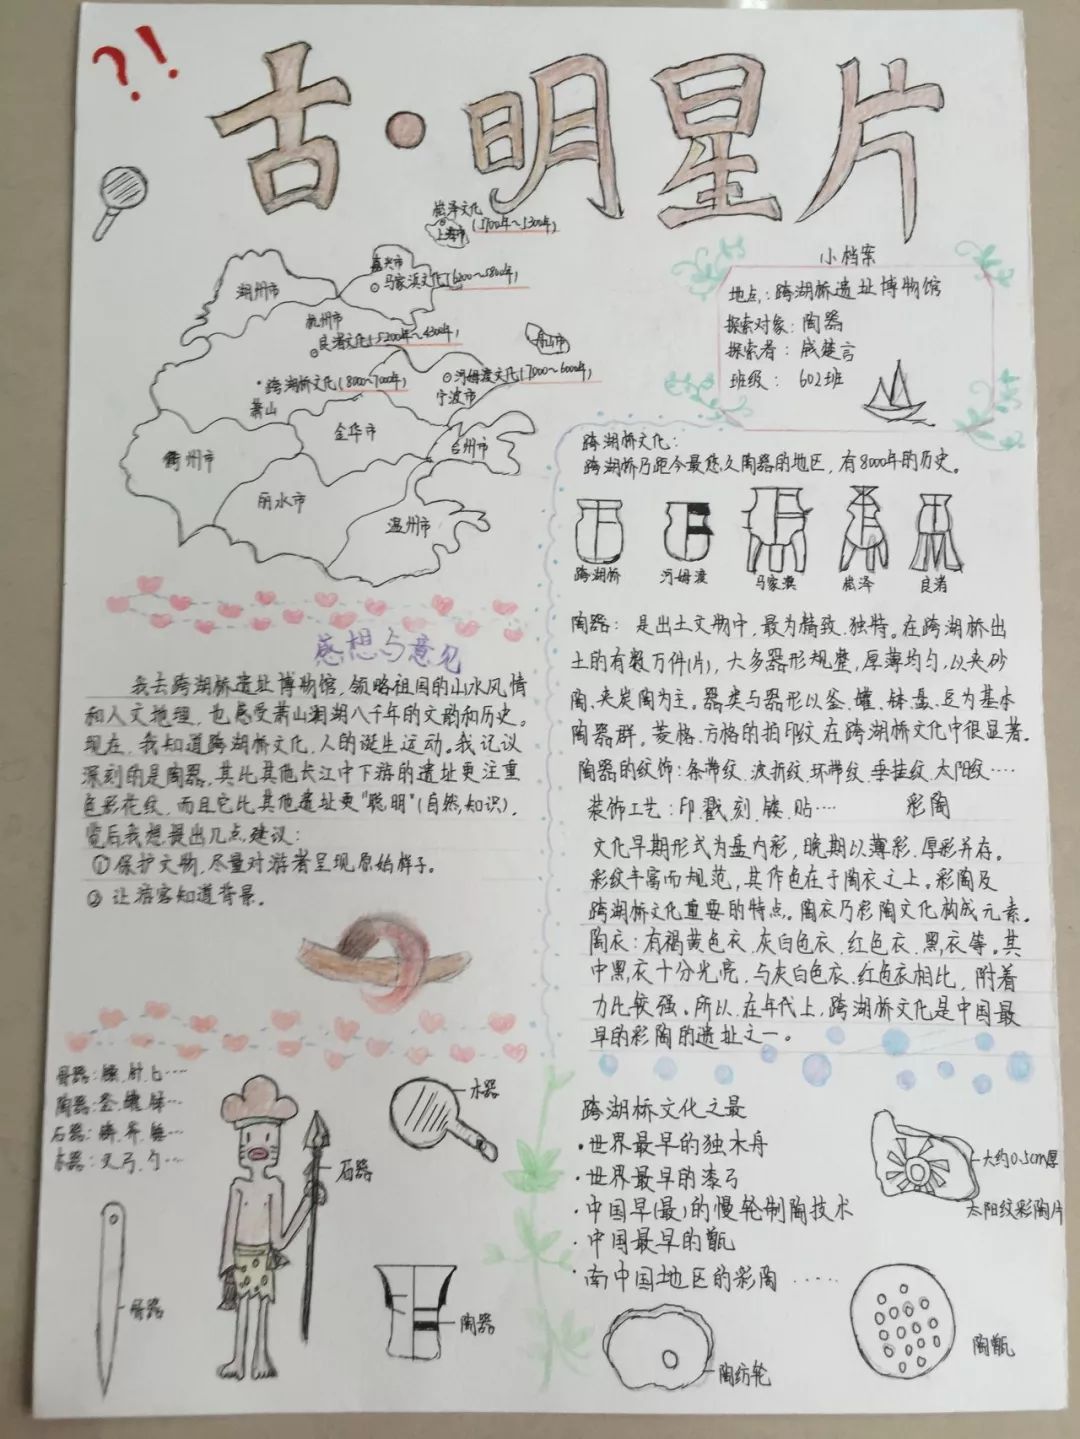 ?!
古·明星片
崧泽文化
上海市(5700年~5300年)
嘉兴市
马家浜文化(6200~5800年)
湖州市
杭州市
良渚文化(5200年~4300年)
舟山市
跨湖桥文化(8000~7000年)
萧山
河姆渡文化(7000~6000年)
宁波市
金华市
台州市
衢州市
丽水市
温州市
小档案
地点:跨湖桥遗址博物馆
探索对象:陶器
探索者:戚楚言
班级:602班
跨湖桥文化:
跨湖桥乃距今最悠久陶器的地区,有8000年的历史。
跨湖桥 河姆渡 马家浜 崧泽 良渚
陶器:是出土文物中,最为精致、独特。在跨湖桥出
土的有数万件(片),大多器形规整,厚薄均匀,以夹砂
陶、夹炭陶为主。器类与器形以釜、罐、钵、盘、豆为基本
陶器群。菱格、方格的拍印纹在跨湖桥文化中很显著。
陶器的纹饰:条带纹、波折纹、环带纹、垂挂纹、太阳纹……
装饰工艺:印、戳、刻、镂、贴…
彩陶
文化早期形式为盘内彩,晚期以薄彩、厚彩并存。
彩纹丰富而规范,其作色在于陶衣之上。彩陶及
跨湖桥文化重要的特点。陶衣乃彩陶文化构成元素。
陶衣:有褐黄色衣、灰白色衣、红色衣、黑衣等。其
中黑衣十分光亮,与灰白色衣、红色衣相比,附着
力比较强。所以,在年代上,跨湖桥文化是中国最
早的彩陶的遗址之一。
感想与意见
我去跨湖桥遗址博物馆,领略祖国的山水风情
和人文地理,也感受萧山湘湖八千年的文韵和历史。
现在,我知道跨湖桥文化、人的诞生运动。我记议
深刻的是陶器,其比其他长江中下游的遗址更注重
色彩花纹,而且它比其他遗址更"聪明"(自然知识),
览后我想提出几点建议:
①保护文物,尽量对游者呈现原始样子。
②让游客知道背景。
骨器:
陶器:釜、罐、钵…
石器:锛、斧、锤…
木器:叉、弓、勺…
木器
石器
骨器
陶器
跨湖桥文化之最
·世界最早的独木舟
·世界最早的漆弓
·中国早(最)的慢轮制陶技术
·中国最早的甑
·南中国地区的彩陶 ……
大约0.5cm厚
太阳纹彩陶片
陶纺轮
陶甑